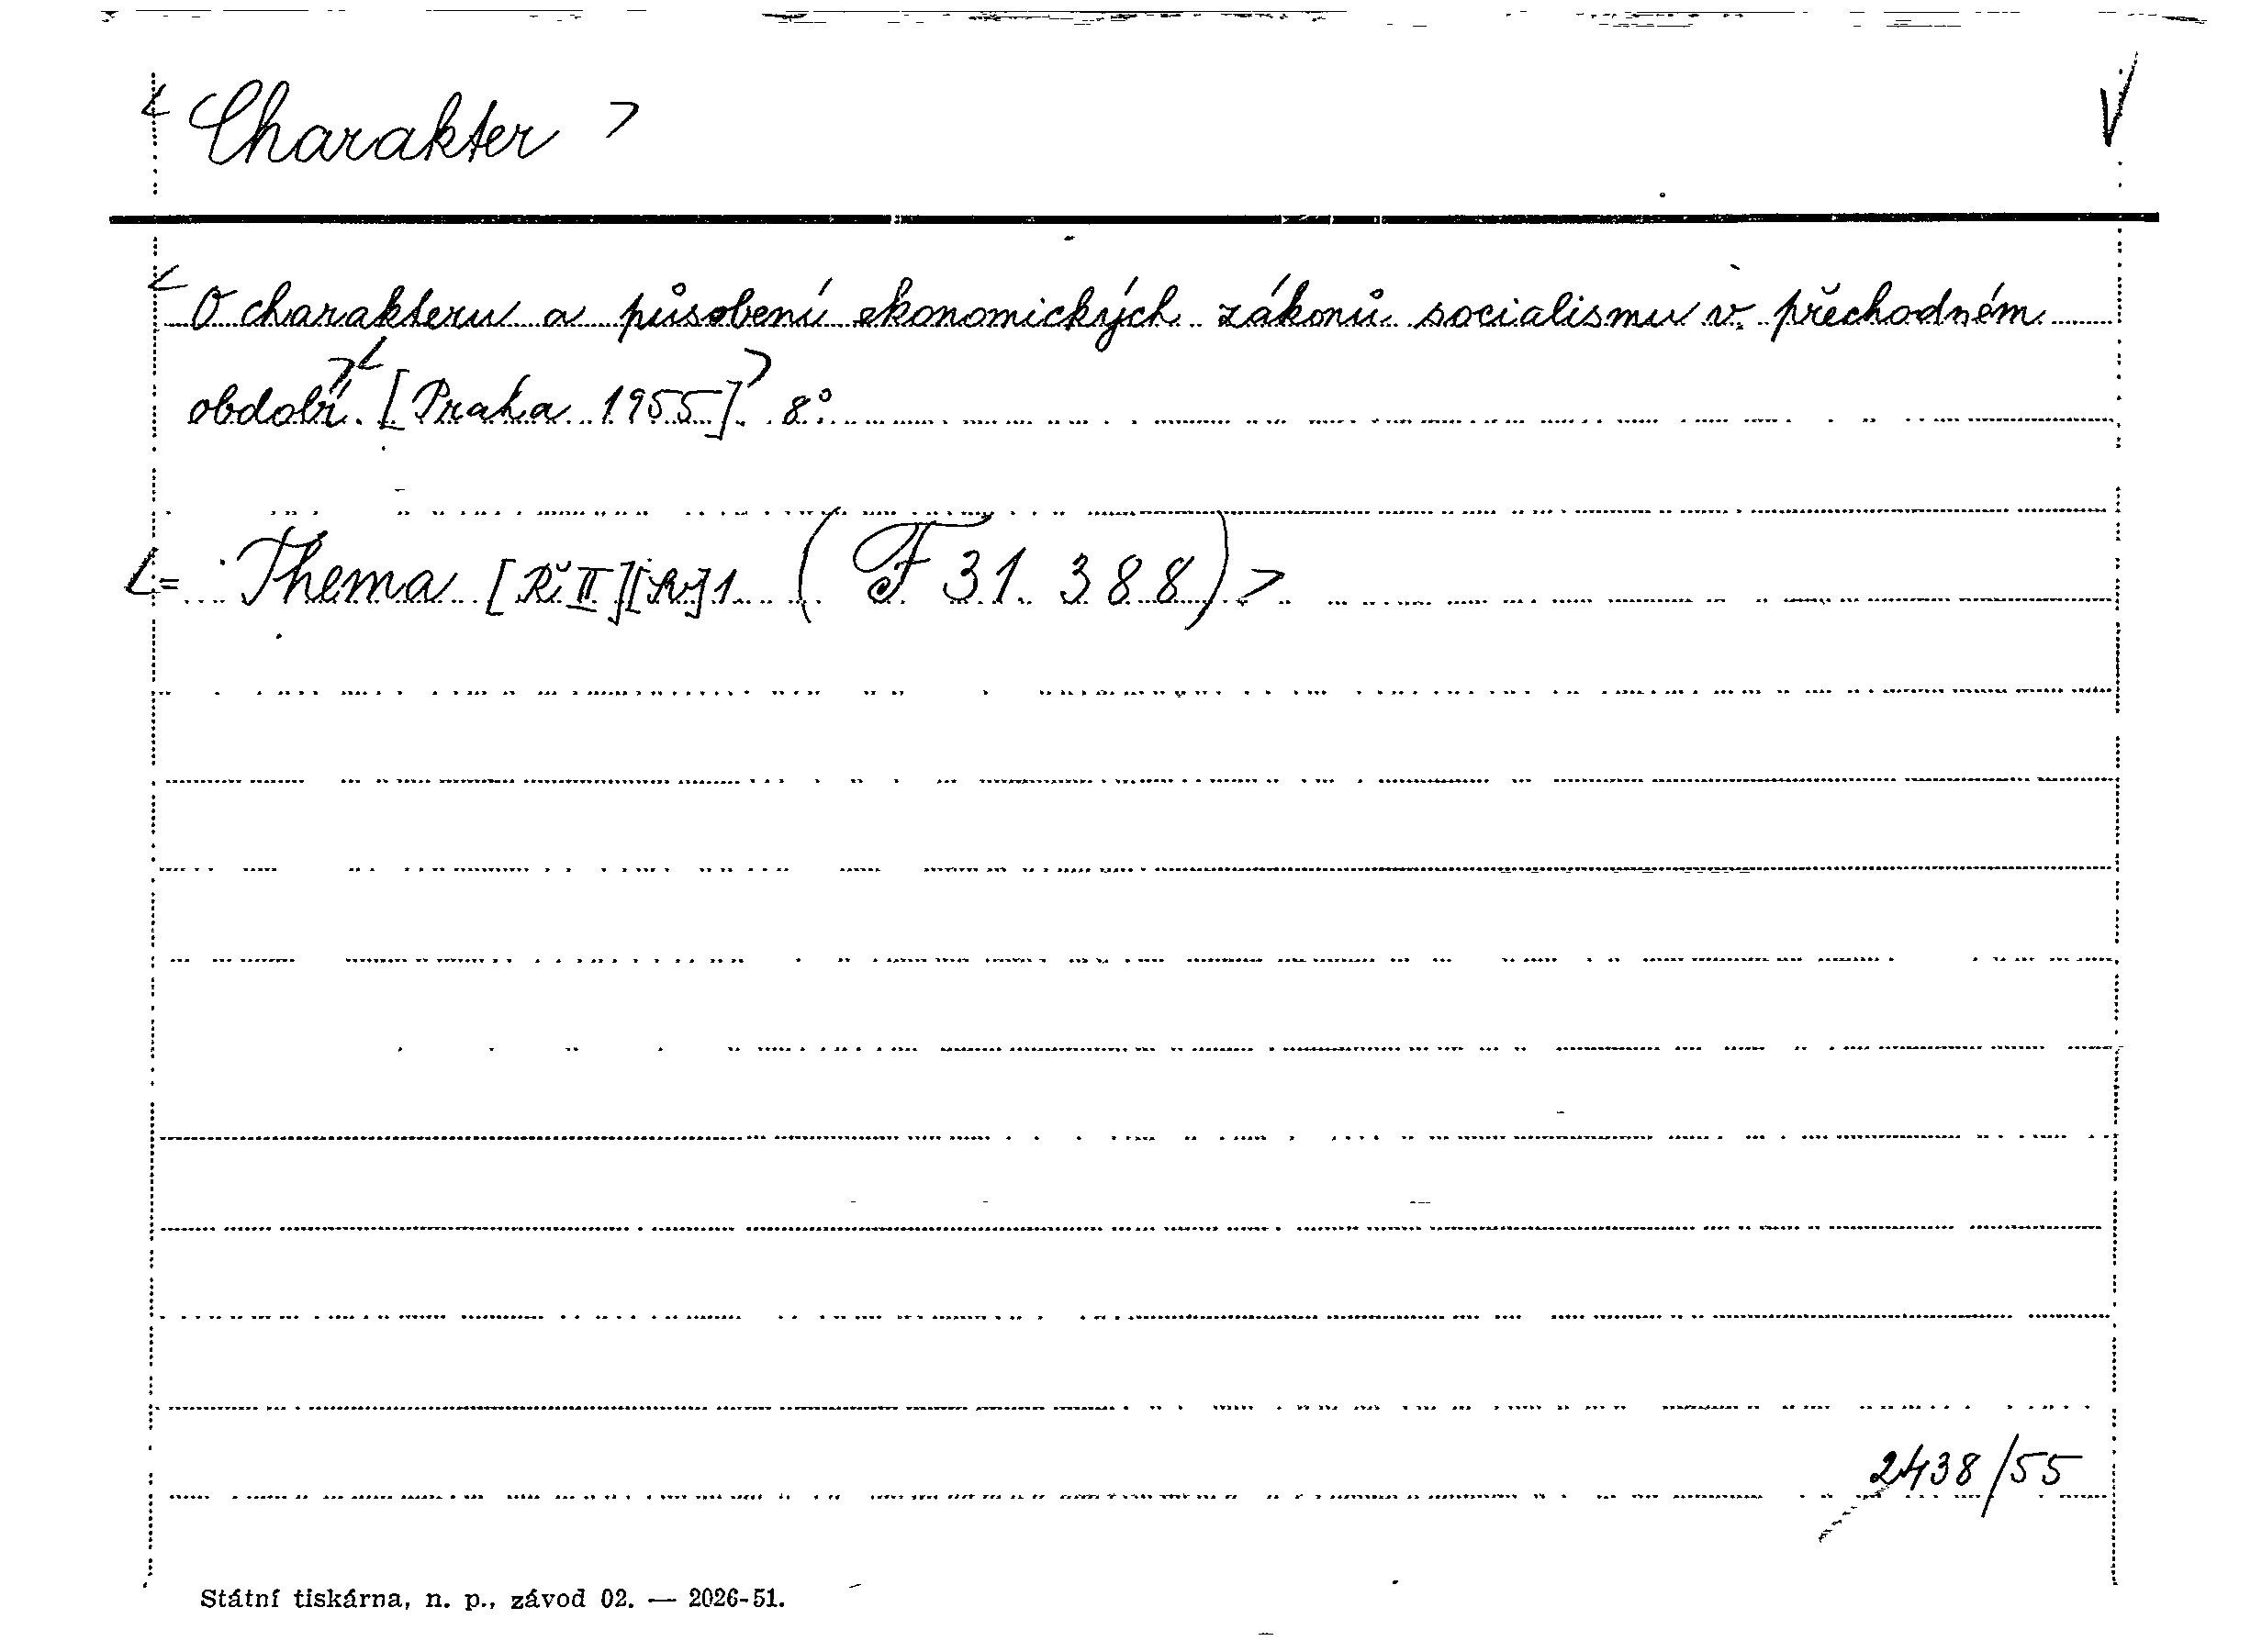 < Charakter > V
< O charakteru a působení ekonomických zákonů socialismu v přechodném
období. >< [Praha 1955]. > 8°.
< = Thema [Ř II] 1 (F 31.388) >
2438/55
Státní tiskárna, n. p., závod 02. — 2026-51.